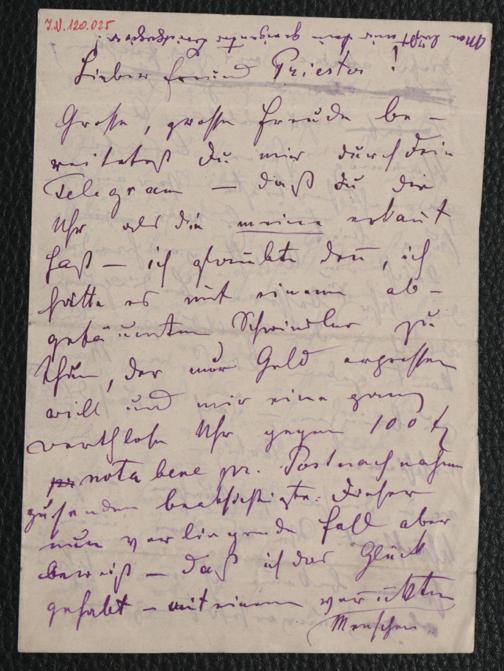 J.N. 120.025
Lieber Freund Priester!
Grosse, grosse Freude be-
reitetest du mir durch dein
Telegram – daß du die
Uhr als die meine erkant
hast – ich glaubte den, ich
hätte es mit einem ab-
gefäumten Schwindler zu
thun, der nur Geld erpressen
will und mir eine ganz
werthlose Uhr gegen 100 fl
nota bene pr. Postnachnahme
zusenden beabsichtigte. Dieser
nun vorliegende Fall aber
beweist – daß ich das Glück
gehabt – mit einem verrückten
Menschen